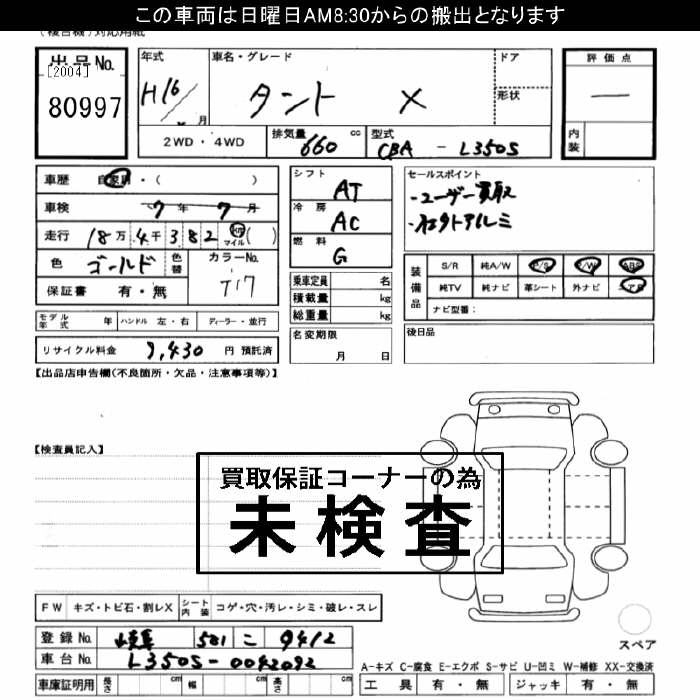 この車両は日曜日AM8:30からの搬出となります
出品No.
[2004]
80997
年式
H16
月
車名・グレード
タント X
ドア
形状
評価点
一
内装
2WD・4WD
排気量
660
cc
型式
CBA - L350S
車歴 自家用・( )
車検 7 年 7 月
走行 18万 4千 382 Km マイル ( )
色 ゴールド 色替
カラーNo.
T17
保証書 有・無
シフト
AT
冷房
AC
燃料
G
乗車定員 名
積載量 kg
総重量 kg
セールスポイント
・ユーザー買取
・社外アルミ
装備品
S/R 純A/W P/S P/W ABS
純TV 純ナビ 革シート 外ナビ エアB
ナビ型番:
モデル年式 年 ハンドル 左・右 ディーラー・並行
リサイクル料金 9,430 円 預託済
名変期限
月 日
後日品
【出品店申告欄(不良箇所・欠品・注意事項等)】
【検査員記入】
買取保証コーナーの為
未検査
FW キズ・トビ石・割レX シート内装 コゲ・穴・汚レ・シミ・破レ・スレ
登録No. 岐阜 581 こ 9412
車台No. L350S-0042092
車庫証明用 長さ cm 幅 cm 高さ cm
スペア
A-キズ C-腐食 E-エクボ S-サビ U-凹ミ W-補修 XX-交換済
工具 有・無 ジャッキ 有・無